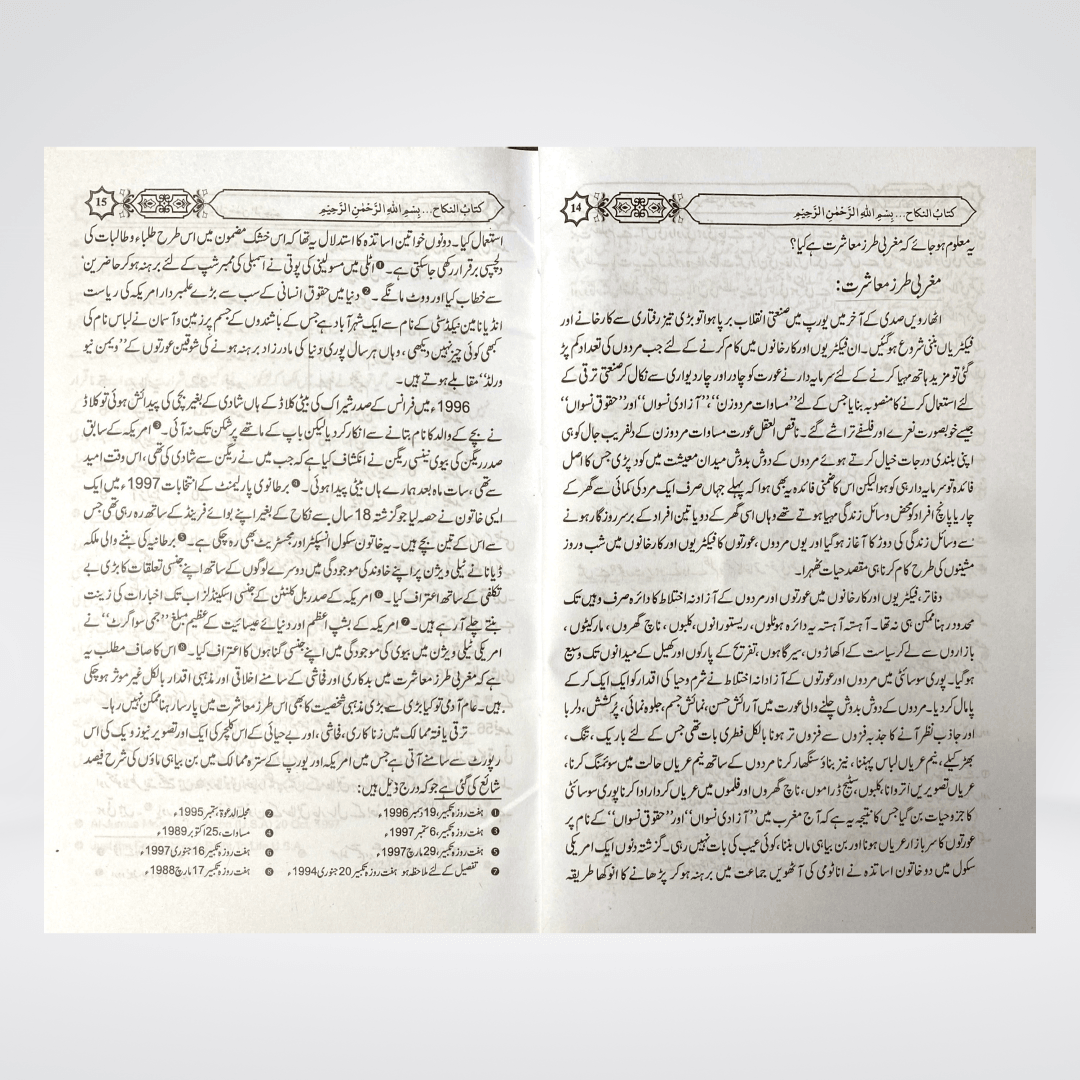 14
کتاب النکاح... بِسْمِ اللّٰهِ الرَّحْمٰنِ الرَّحِيْمِ
یہ معلوم ہو جائے کہ مغربی طرز معاشرت ہے کیا؟
مغربی طرز معاشرت:
اٹھارویں صدی کے آخر میں یورپ میں صنعتی انقلاب برپا ہوا تو بڑی تیز رفتاری سے کارخانے اور
فیکٹریاں بننی شروع ہوگئیں۔ ان فیکٹریوں اور کارخانوں میں کام کرنے کے لئے جب مردوں کی تعداد کم پڑ
گئی تو مزید ہاتھ مہیا کرنے کے لئے سرمایہ دار نے عورت کو چادر اور چار دیواری سے نکال کر صنعتی ترقی کے
لئے استعمال کرنے کا منصوبہ بنایا جس کے لئے ’’مساوات مرد و زن‘‘، ’’آزادی نسواں‘‘ اور ’’حقوق نسواں‘‘
جیسے خوبصورت نعرے اور فلسفے تراشے گئے۔ ناقص العقل عورت مساوات مرد و زن کے دلفریب جال کو ہی
اپنی بلندی درجات خیال کرتے ہوئے مردوں کے دوش بدوش میدان معیشت میں کود پڑی جس کا اصل
فائدہ تو سرمایہ دار ہی کو ہوا لیکن اس کا ضمنی فائدہ یہ بھی ہوا کہ پہلے جہاں صرف ایک مرد کی کمائی سے گھر کے
چار یا پانچ افراد کو محض وسائل زندگی مہیا ہوتے تھے وہاں اسی گھر کے دو یا تین افراد کے برسر روزگار ہونے
سے وسائل زندگی کی دوڑ کا آغاز ہوگیا اور یوں مردوں، عورتوں کا فیکٹریوں اور کارخانوں میں شب و روز
مشینوں کی طرح کام کرنا ہی مقصد حیات ٹھہرا۔
دفاتر، فیکٹریوں اور کارخانوں میں عورتوں اور مردوں کے آزادانہ اختلاط کا دائرہ صرف وہیں تک
محدود رہنا ممکن ہی نہ تھا۔ آہستہ آہستہ یہ دائرہ ہوٹلوں، ریستورانوں، کلبوں، ناچ گھروں، مارکیٹوں،
بازاروں سے لے کر سیاست کے اکھاڑوں، سیرگاہوں، تفریح کے پارکوں اور کھیل کے میدانوں تک وسیع
ہوگیا۔ پوری سوسائٹی میں مردوں اور عورتوں کے آزادانہ اختلاط نے شرم و حیا کی اقدار کو ایک ایک کر کے
پامال کر دیا۔ مردوں کے دوش بدوش چلنے والی عورت میں آرائش حسن، نمائش جسم، جلوہ نمائی، پرکشش، دلربا
اور جاذب نظر آنے کا جذبہ فزوں سے فزوں تر ہونا بالکل فطری بات تھی جس کے لئے باریک، تنگ،
بھڑکیلے، نیم عریاں لباس پہننا، نیز بناؤ سنگھار کرنا مردوں کے ساتھ نیم عریاں حالت میں سوئمنگ کرنا،
عریاں تصویریں اتروانا، کلبوں، سٹیج ڈراموں، ناچ گھروں اور فلموں میں عریاں کردار ادا کرنا پوری سوسائٹی
کا جزو حیات بن گیا جس کا نتیجہ یہ ہے کہ آج مغرب میں ’’آزادی نسواں‘‘ اور ’’حقوق نسواں‘‘ کے نام پر
عورتوں کا سربازار عریاں ہونا اور بن بیاہی ماں بننا، کوئی عیب کی بات نہیں رہی۔ گزشتہ دنوں ایک امریکی
سکول میں دو خاتون اساتذہ نے اناٹومی کی آٹھویں جماعت میں برہنہ ہوکر پڑھانے کا انوکھا طریقہ
15
کتاب النکاح... بِسْمِ اللّٰهِ الرَّحْمٰنِ الرَّحِيْمِ
استعمال کیا۔ دونوں خواتین اساتذہ کا استدلال یہ تھا کہ اس خشک مضمون میں اس طرح طلباء و طالبات کی
دلچسپی برقرار رکھی جا سکتی ہے۔❶ اٹلی میں مسولینی کی پوتی نے اسمبلی کی ممبرشپ کے لئے برہنہ ہوکر حاضرین
سے خطاب کیا اور ووٹ مانگے۔❷ دنیا میں حقوق انسانی کے سب سے بڑے علمبردار امریکہ کی ریاست
انڈیانا میں نیکڈسٹی کے نام سے ایک شہر آباد ہے جس کے باشندوں کے جسم پر زمین و آسمان نے لباس نام کی
کبھی کوئی چیز نہیں دیکھی، وہاں ہر سال پوری دنیا کی مادر زاد برہنہ ہونے کی شوقین عورتوں کے ’’ویمن نیو
ورلڈ‘‘ مقابلے ہوتے ہیں۔
1996ء میں فرانس کے صدر شیراک کی بیٹی کلاڈ کے ہاں شادی کے بغیر بچی کی پیدائش ہوئی تو کلاڈ
نے بچے کے والد کا نام بتانے سے انکار کر دیا لیکن باپ کے ماتھے پر شکن تک نہ آئی۔❸ امریکہ کے سابق
صدر ریگن کی بیوی نینسی ریگن نے انکشاف کیا ہے کہ جب میں نے ریگن سے شادی کی تھی، اس وقت امید
سے تھی، سات ماہ بعد ہمارے ہاں بیٹی پیدا ہوئی۔❹ برطانوی پارلیمنٹ کے انتخابات 1997ء میں ایک
ایسی خاتون نے حصہ لیا جو گزشتہ 18 سال سے نکاح کے بغیر اپنے بوائے فرینڈ کے ساتھ رہ رہی تھی جس
سے اس کے تین بچے ہیں۔ یہ خاتون سکول انسپکٹر اور مجسٹریٹ بھی رہ چکی ہے۔❺ برطانیہ کی بننے والی ملکہ
ڈیانا نے ٹیلی ویژن پر اپنے خاوند کی موجودگی میں دوسرے لوگوں کے ساتھ اپنے جنسی تعلقات کا بڑی بے
تکلفی کے ساتھ اعتراف کیا۔❻ امریکہ کے صدر بل کلنٹن کے جنسی اسکینڈلز اب تک اخبارات کی زینت
بنتے چلے آ رہے ہیں۔❼ امریکہ کے بشپ اعظم اور دنیائے عیسائیت کے عظیم مبلغ ’’جمی سواگرٹ‘‘ نے
امریکی ٹیلی ویژن میں بیوی کی موجودگی میں اپنے جنسی گناہوں کا اعتراف کیا۔❽ اس کا صاف مطلب یہ
ہے کہ مغربی طرز معاشرت میں بدکاری اور فحاشی کے سامنے اخلاقی اور مذہبی اقدار بالکل غیر موثر ہو چکی
ہیں۔ عام آدمی تو کیا بڑی سے بڑی مذہبی شخصیت کا بھی اس طرز معاشرت میں پارسا رہنا ممکن نہیں رہا۔
ترقی یافتہ ممالک میں زناکاری، فحاشی، اور بے حیائی کے اس کلچر کی ایک اور تصویر نیوز ویک کی اس
رپورٹ سے سامنے آتی ہے جس میں امریکہ اور یورپ کے سترہ ممالک میں بن بیاہی ماؤں کی شرح فیصد
شائع کی گئی ہے جو کہ درج ذیل ہیں:
❶ ہفت روزہ تکبیر، 19 دسمبر 1996ء ❷ مجلۃ الدعوۃ، ستمبر 1995ء
❸ ہفت روزہ تکبیر، 6 ستمبر 1997ء ❹ مساوات، 25 اکتوبر 1989ء
❺ ہفت روزہ تکبیر، 29 مارچ 1997ء ❻ ہفت روزہ تکبیر 16 جنوری 1997ء
❼ تفصیل کے لئے ملاحظہ ہو ہفت روزہ تکبیر 20 جنوری 1994ء ❽ ہفت روزہ تکبیر 17 مارچ 1988ء